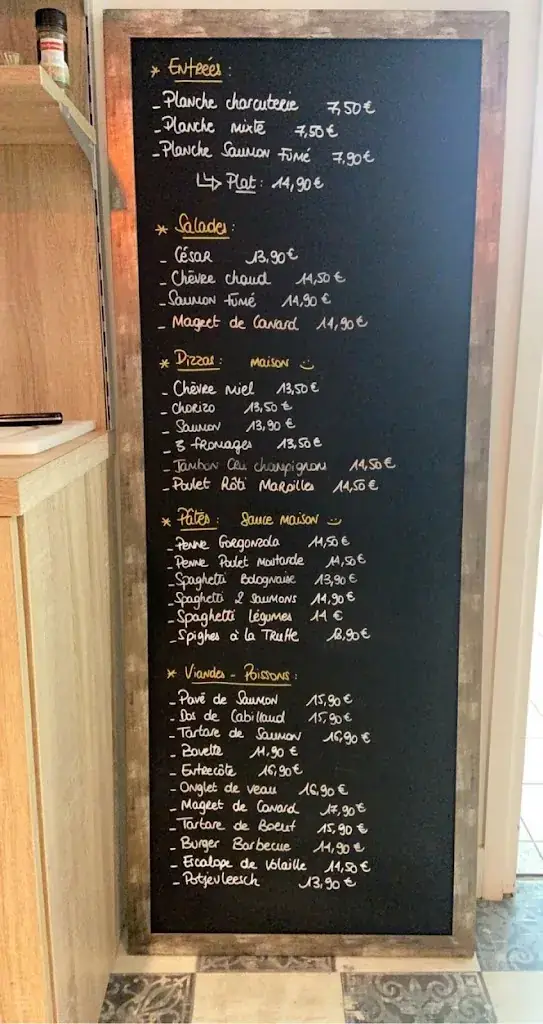 * Entrées :
- Planche charcuterie 7,50 €
- Planche mixte 7,50 €
- Planche Saumon Fumé 7,90 €
↳ Plat : 14,90 €
* Salades :
- César 13,90 €
- Chèvre chaud 14,50 €
- Saumon Fumé 14,90 €
- Magret de Canard 14,90 €
* Pizzas : maison
- Chèvre miel 13,50 €
- Chorizo 13,50 €
- Saumon 13,90 €
- 3 fromages 13,50 €
- Jambon Cru champignons 14,50 €
- Poulet Rôti Maroilles 14,50 €
* Pâtes : Sauce maison
- Penne Gorgonzola 14,50 €
- Penne Poulet moutarde 14,50 €
- Spaghetti Bolognaise 13,90 €
- Spaghetti 2 saumons 14,90 €
- Spaghetti légumes 14 €
- Spighes à la Truffe 18,90 €
* Viandes - Poissons :
- Pavé de Saumon 15,90 €
- Dos de Cabillaud 15,90 €
- Tartare de Saumon 16,90 €
- Bavette 14,90 €
- Entrecôte 16,90 €
- Onglet de veau 16,90 €
- Magret de Canard 17,90 €
- Tartare de Boeuf 15,90 €
- Burger Barbecue 14,90 €
- Escalope de Volaille 14,50 €
- Potjevleesch 13,90 €